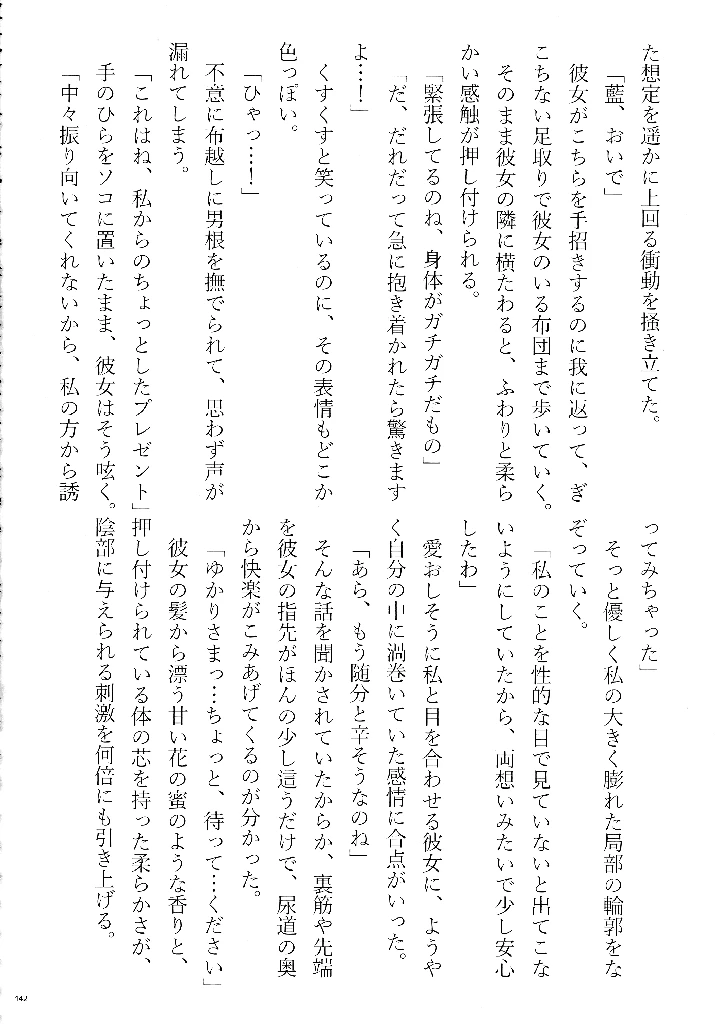 た想定を遥かに上回る衝動を掻き立てた。
「藍、おいで」
彼女がこちらを手招きするのに我に返って、ぎ
こちない足取りで彼女のいる布団まで歩いていく。
そのまま彼女の隣に横たわると、ふわりと柔ら
かい感触が押し付けられる。
「緊張してるのね、身体がガチガチだもの」
「だ、だれだって急に抱き着かれたら驚きます
よ…！」
くすくすと笑っているのに、その表情もどこか
色っぽい。
「ひゃっ…！」
不意に布越しに男根を撫でられて、思わず声が
漏れてしまう。
「これはね、私からのちょっとしたプレゼント」
手のひらをソコに置いたまま、彼女はそう呟く。
「中々振り向いてくれないから、私の方から誘
ってみちゃった」
そっと優しく私の大きく膨れた局部の輪郭をな
ぞっていく。
「私のことを性的な目で見ていないと出てこな
いようにしていたから、両想いみたいで少し安心
したわ」
愛おしそうに私と目を合わせる彼女に、ようや
く自分の中に渦巻いていた感情に合点がいった。
「あら、もう随分と辛そうなのね」
そんな話を聞かされていたからか、裏筋や先端
を彼女の指先がほんの少し這うだけで、尿道の奥
から快楽がこみあげてくるのが分かった。
「ゆかりさまっ…ちょっと、待って…ください」
彼女の髪から漂う甘い花の蜜のような香りと、
押し付けられている体の芯を持った柔らかさが、
陰部に与えられる刺激を何倍にも引き上げる。
142